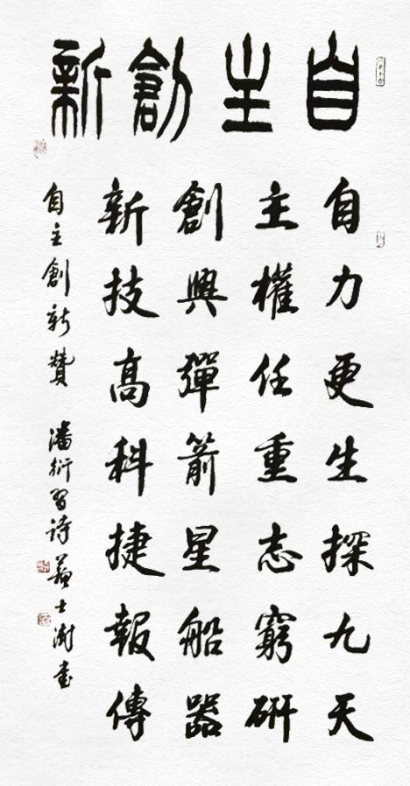 自主創新
自力更生探九天
主權任重志窮研
創興彈箭星船器
新技高科捷報傳
自主創新贊 潘衍習詩 蘇士澍書